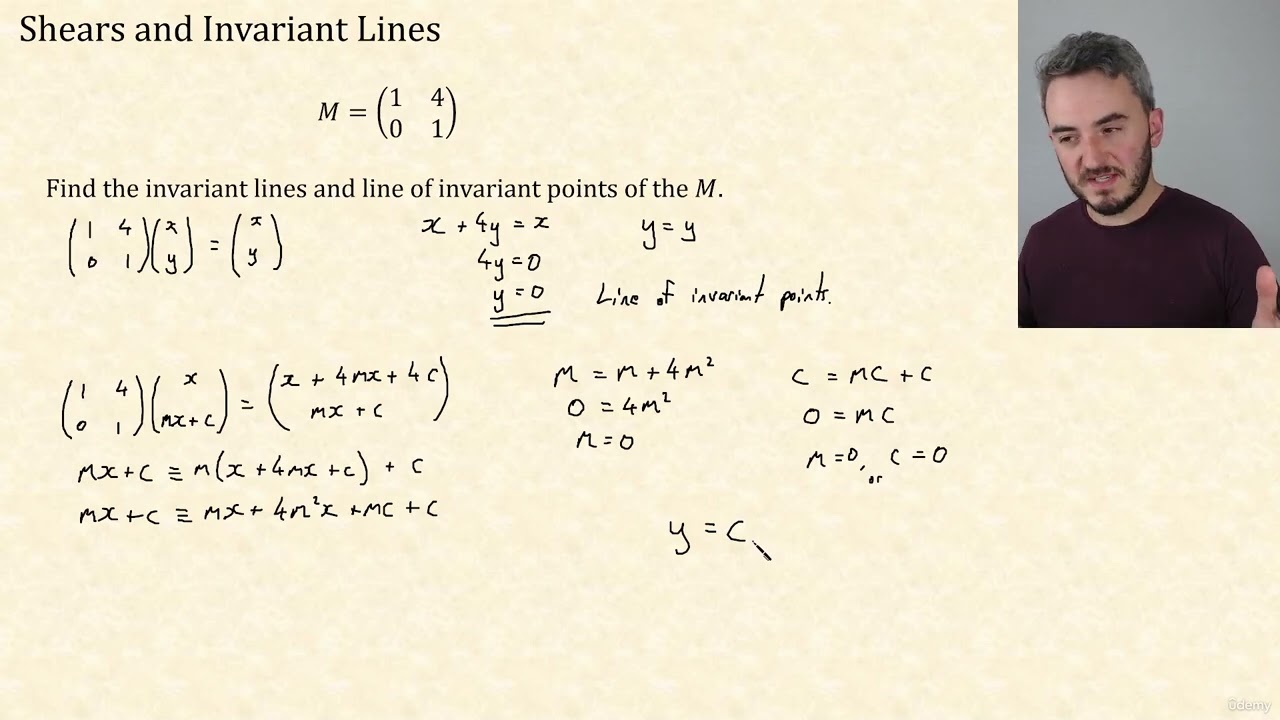 Shears and Invariant Lines
M = (1 4
0 1)
Find the invariant lines and line of invariant points of the M.
(1 4
0 1)(x
y) = (x
y)
x + 4y = x
4y = 0
y = 0
y = y
Line of invariant points.
(1 4
0 1)(x
mx+c) = (x + 4mx + 4c
mx + c)
mx+c ≡ m(x + 4mx + c) + c
mx+c ≡ mx + 4m²x + mc + c
m = m + 4m²
0 = 4m²
m = 0
c = mc + c
0 = mc
m = 0, or c = 0
y = c
ûdemy